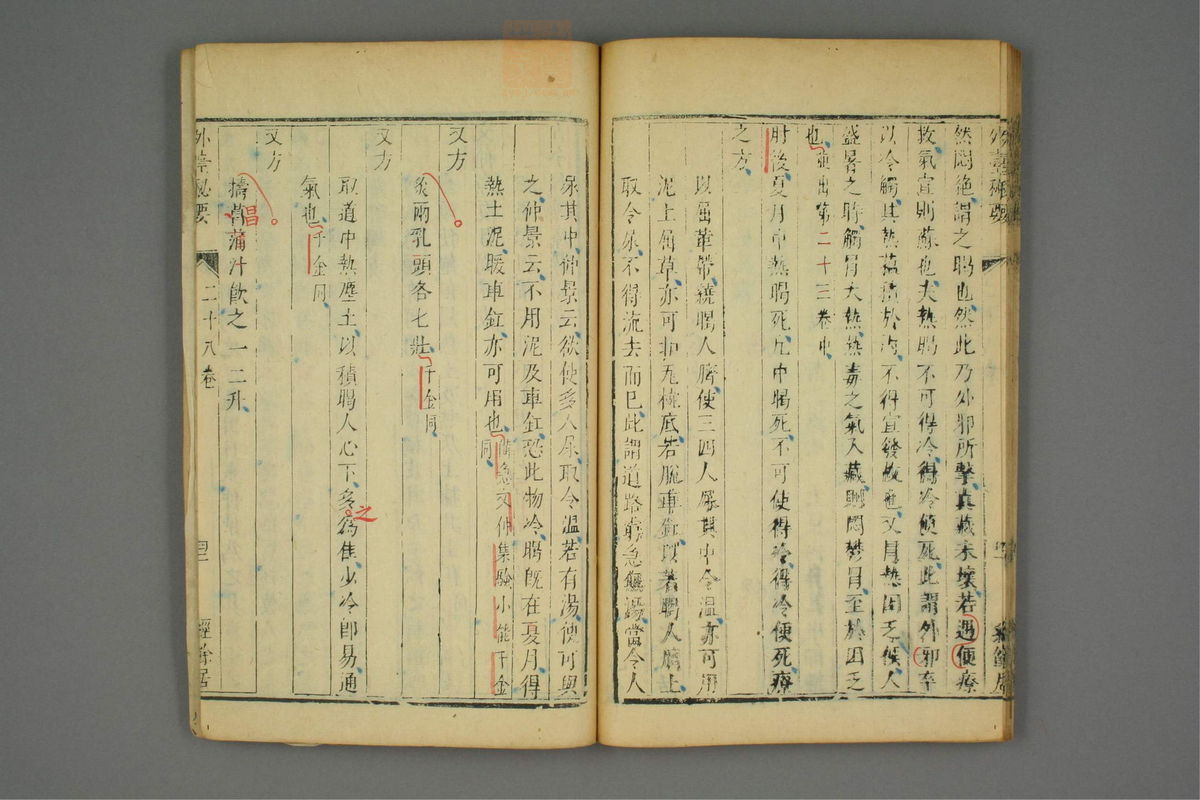 外臺秘要
然悶絕謂之暍也然此乃外邪所擊真藏未壞若遇便療
救氣宣則蘇也夫熱暍不可得冷得冷便死此謂外邪卒
以冷觸其熱蘊積於內不得宣發故也又冒熱困乏候人
盛暑之時觸冒大熱熱毒之氣入藏腑悶鬱冒至於困乏
也並出第二十三卷中
肘後夏月中熱暍死凡中暍死不可使得冷得冷便死療
之方
以屈革帶繞暍人臍使三四人尿其中令溫亦可用
泥土屈草亦可扣瓦椀底若脫車釭以著暍人臍上
取令尿不得流去而已此謂道路窮急無湯當令人
尿其中仲景云欲使多人尿取令溫若有湯便可與
之仲景云不用泥及車釭恐此物冷暍既在夏月得
熱土泥暖車釭亦可用也備急文仲集驗小品千金同
又方
灸兩乳頭各七壯千金同
又方
取道中熱塵土以積暍人心下多為佳少冷即易通
之
氣也千金同
又方
擣菖蒲汁飲之一二升
昌
外臺秘要
二十八卷
經餘居